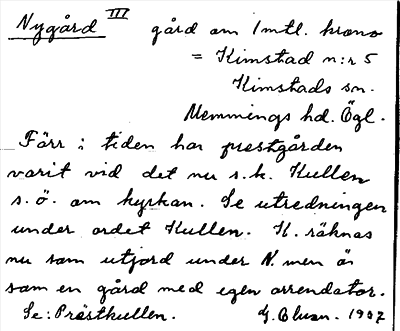 Nygård III gård om 1 mtl. krono
= Kimstad n:r 5
Kimstads sn.
Memmings hd. Ögl.
Förr i tiden har prestgården
varit vid det nu s.k. Kullen
s.ö. om kyrkan. Se utredningen
under ordet Kullen. K. räknas
nu som utjord under N. men är
som en gård med egen arrendator.
Se: Prästkullen. G. Olsson. 1937